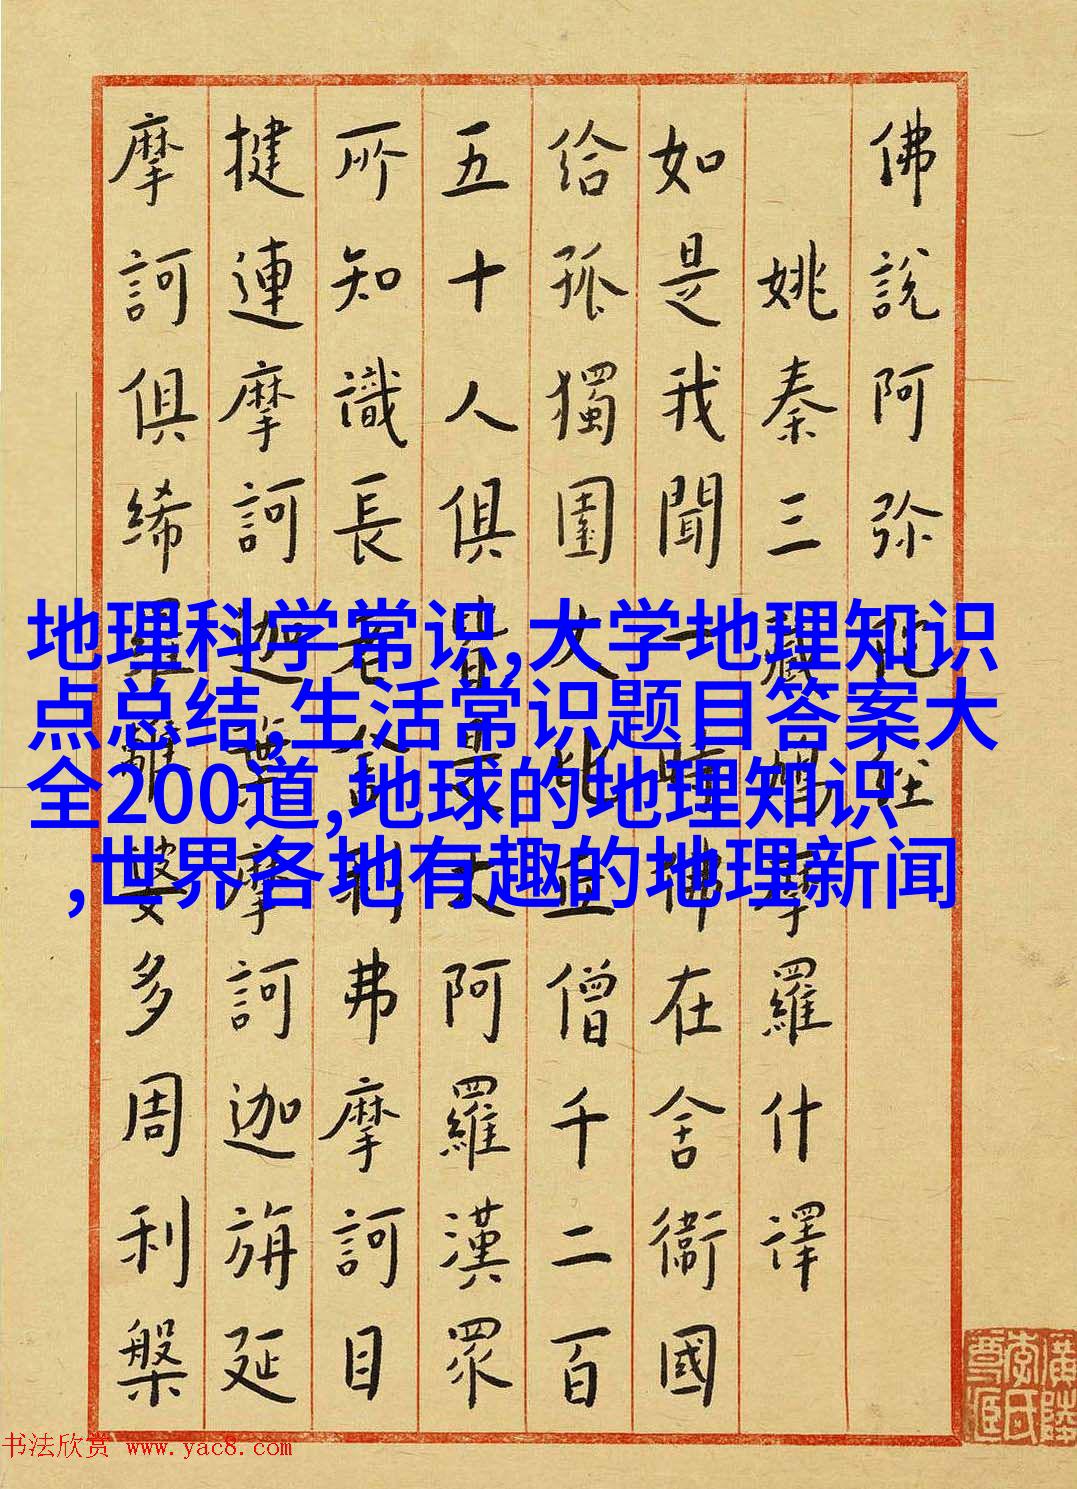 佛說阿弥陀经
姚秦三藏鸠摩羅什譯
如是我聞一時佛在舍衞國
给孤獨園大比丘僧千二百
五十人俱皆是大阿羅漢眾
所知識長老舍利弗摩訶目
揵連摩訶迦葉摩訶迦旃延
摩訶俱絺羅離婆多周利槃
地理科学常识,大学地理知识
点总结,生活常识题目答案大
全200道,地球的地理知识
,世界各地有趣的地理新闻
书法欣赏 www.yac8.com